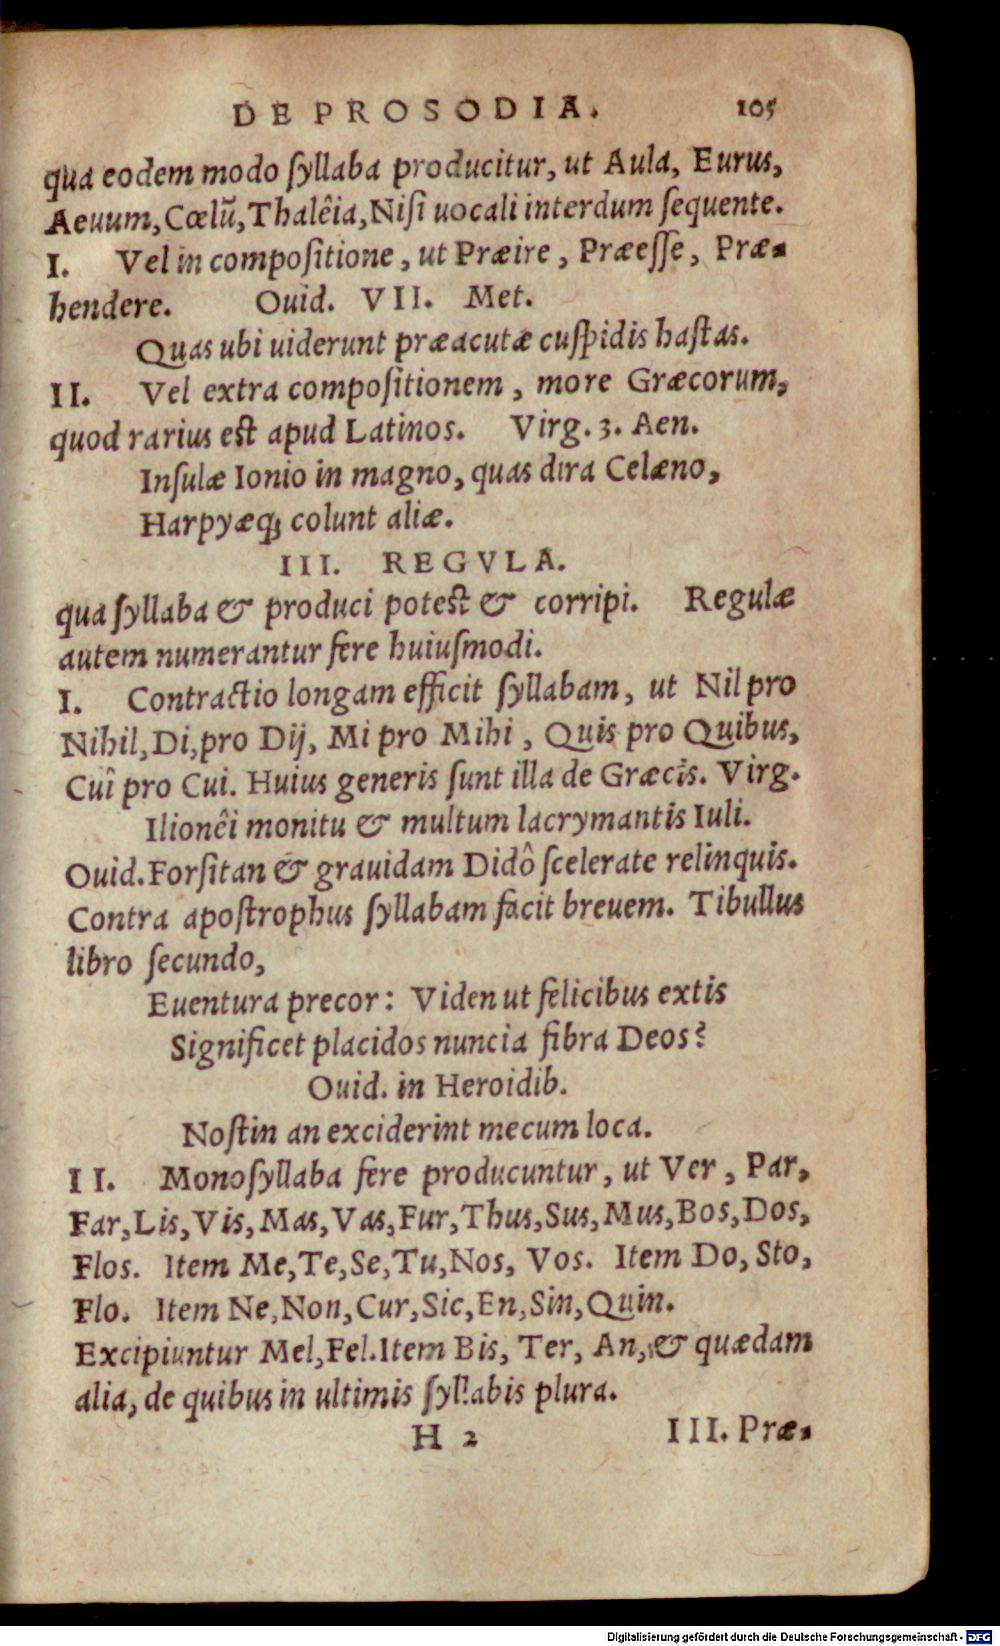 DE PROSODIA. 105
qua eodem modo ſyllaba producitur, ut Aula, Eurus,
Aeuum, Cœlũ, Thalêia, Niſi uocali interdum ſequente.
I. Vel in compoſitione, ut Præire, Præeſſe, Præ-
hendere. Ouid. VII. Met.
Quas ubi uiderunt præacutæ cuſpidis haſtas.
II. Vel extra compoſitionem, more Græcorum,
quod rarius est apud Latinos. Virg. 3. Aen.
Inſulæ Ionio in magno, quas dira Celæno,
Harpyæq; colunt aliæ.
III. REGVLA.
qua ſyllaba & produci potest & corripi. Regulæ
autem numerantur fere huiuſmodi.
I. Contractio longam efficit ſyllabam, ut Nil pro
Nihil, Di, pro Dij, Mi pro Mihi, Quis pro Quibus,
Cuî pro Cui. Huius generis ſunt illa de Græcis. Virg.
Ilionêi monitu & multum lacrymantis Iuli.
Ouid. Forſitan & grauidam Didô ſcelerate relinquis.
Contra apoſtrophus ſyllabam facit breuem. Tibullus
libro ſecundo,
Euentura precor: Viden ut felicibus extis
Significet placidos nuncia fibra Deos?
Ouid. in Heroidib.
Noſtin an exciderint mecum loca.
II. Monoſyllaba fere producuntur, ut Ver, Par,
Far, Lis, Vis, Mas, Vas, Fur, Thus, Sus, Mus, Bos, Dos,
Flos. Item Me, Te, Se, Tu, Nos, Vos. Item Do, Sto,
Flo. Item Ne, Non, Cur, Sic, En, Sin, Quin.
Excipiuntur Mel, Fel. Item Bis, Ter, An, & quædam
alia, de quibus in ultimis ſyllabis plura.
H 2 III. Præ-
Digitalisierung gefördert durch die Deutsche Forschungsgemeinschaft - DFG